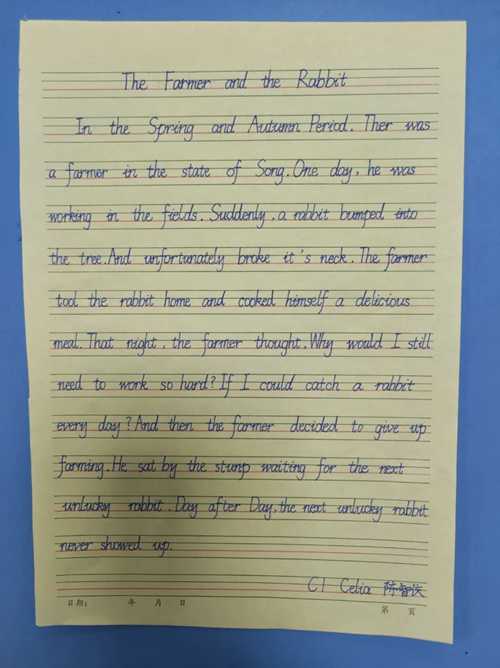 The Farmer and the Rabbit
In the Spring and Autumn Period. Ther was
a farmer in the state of Song. One day, he was
working in the fields. Suddenly, a rabbit bumped into
the tree. And unfortunately broke it's neck. The farmer
tool the rabbit home and cooked himself a delicious
meal. That night, the farmer thought. Why would I still
need to work so hard? If I could catch a rabbit
every day? And then the farmer decided to give up
farming. He sat by the stump waiting for the next
unlucky rabbit. Day after Day, the next unlucky rabbit
never showed up.
C1 Celia 陈智
日期: 年 月 日 第 页